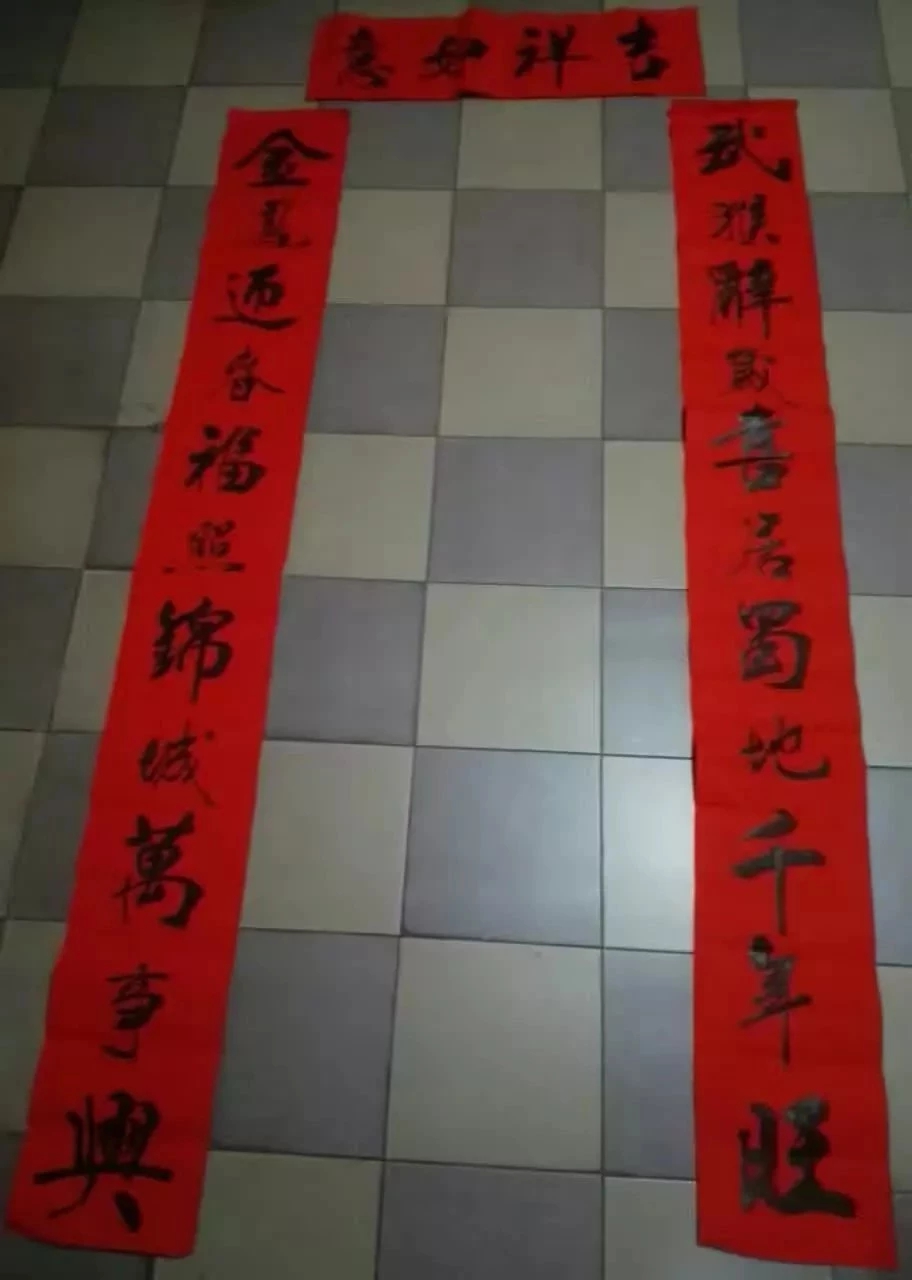 吉祥如意
武猴辭歲喜居蜀地千年旺
金鳳迎春福照錦城萬事興